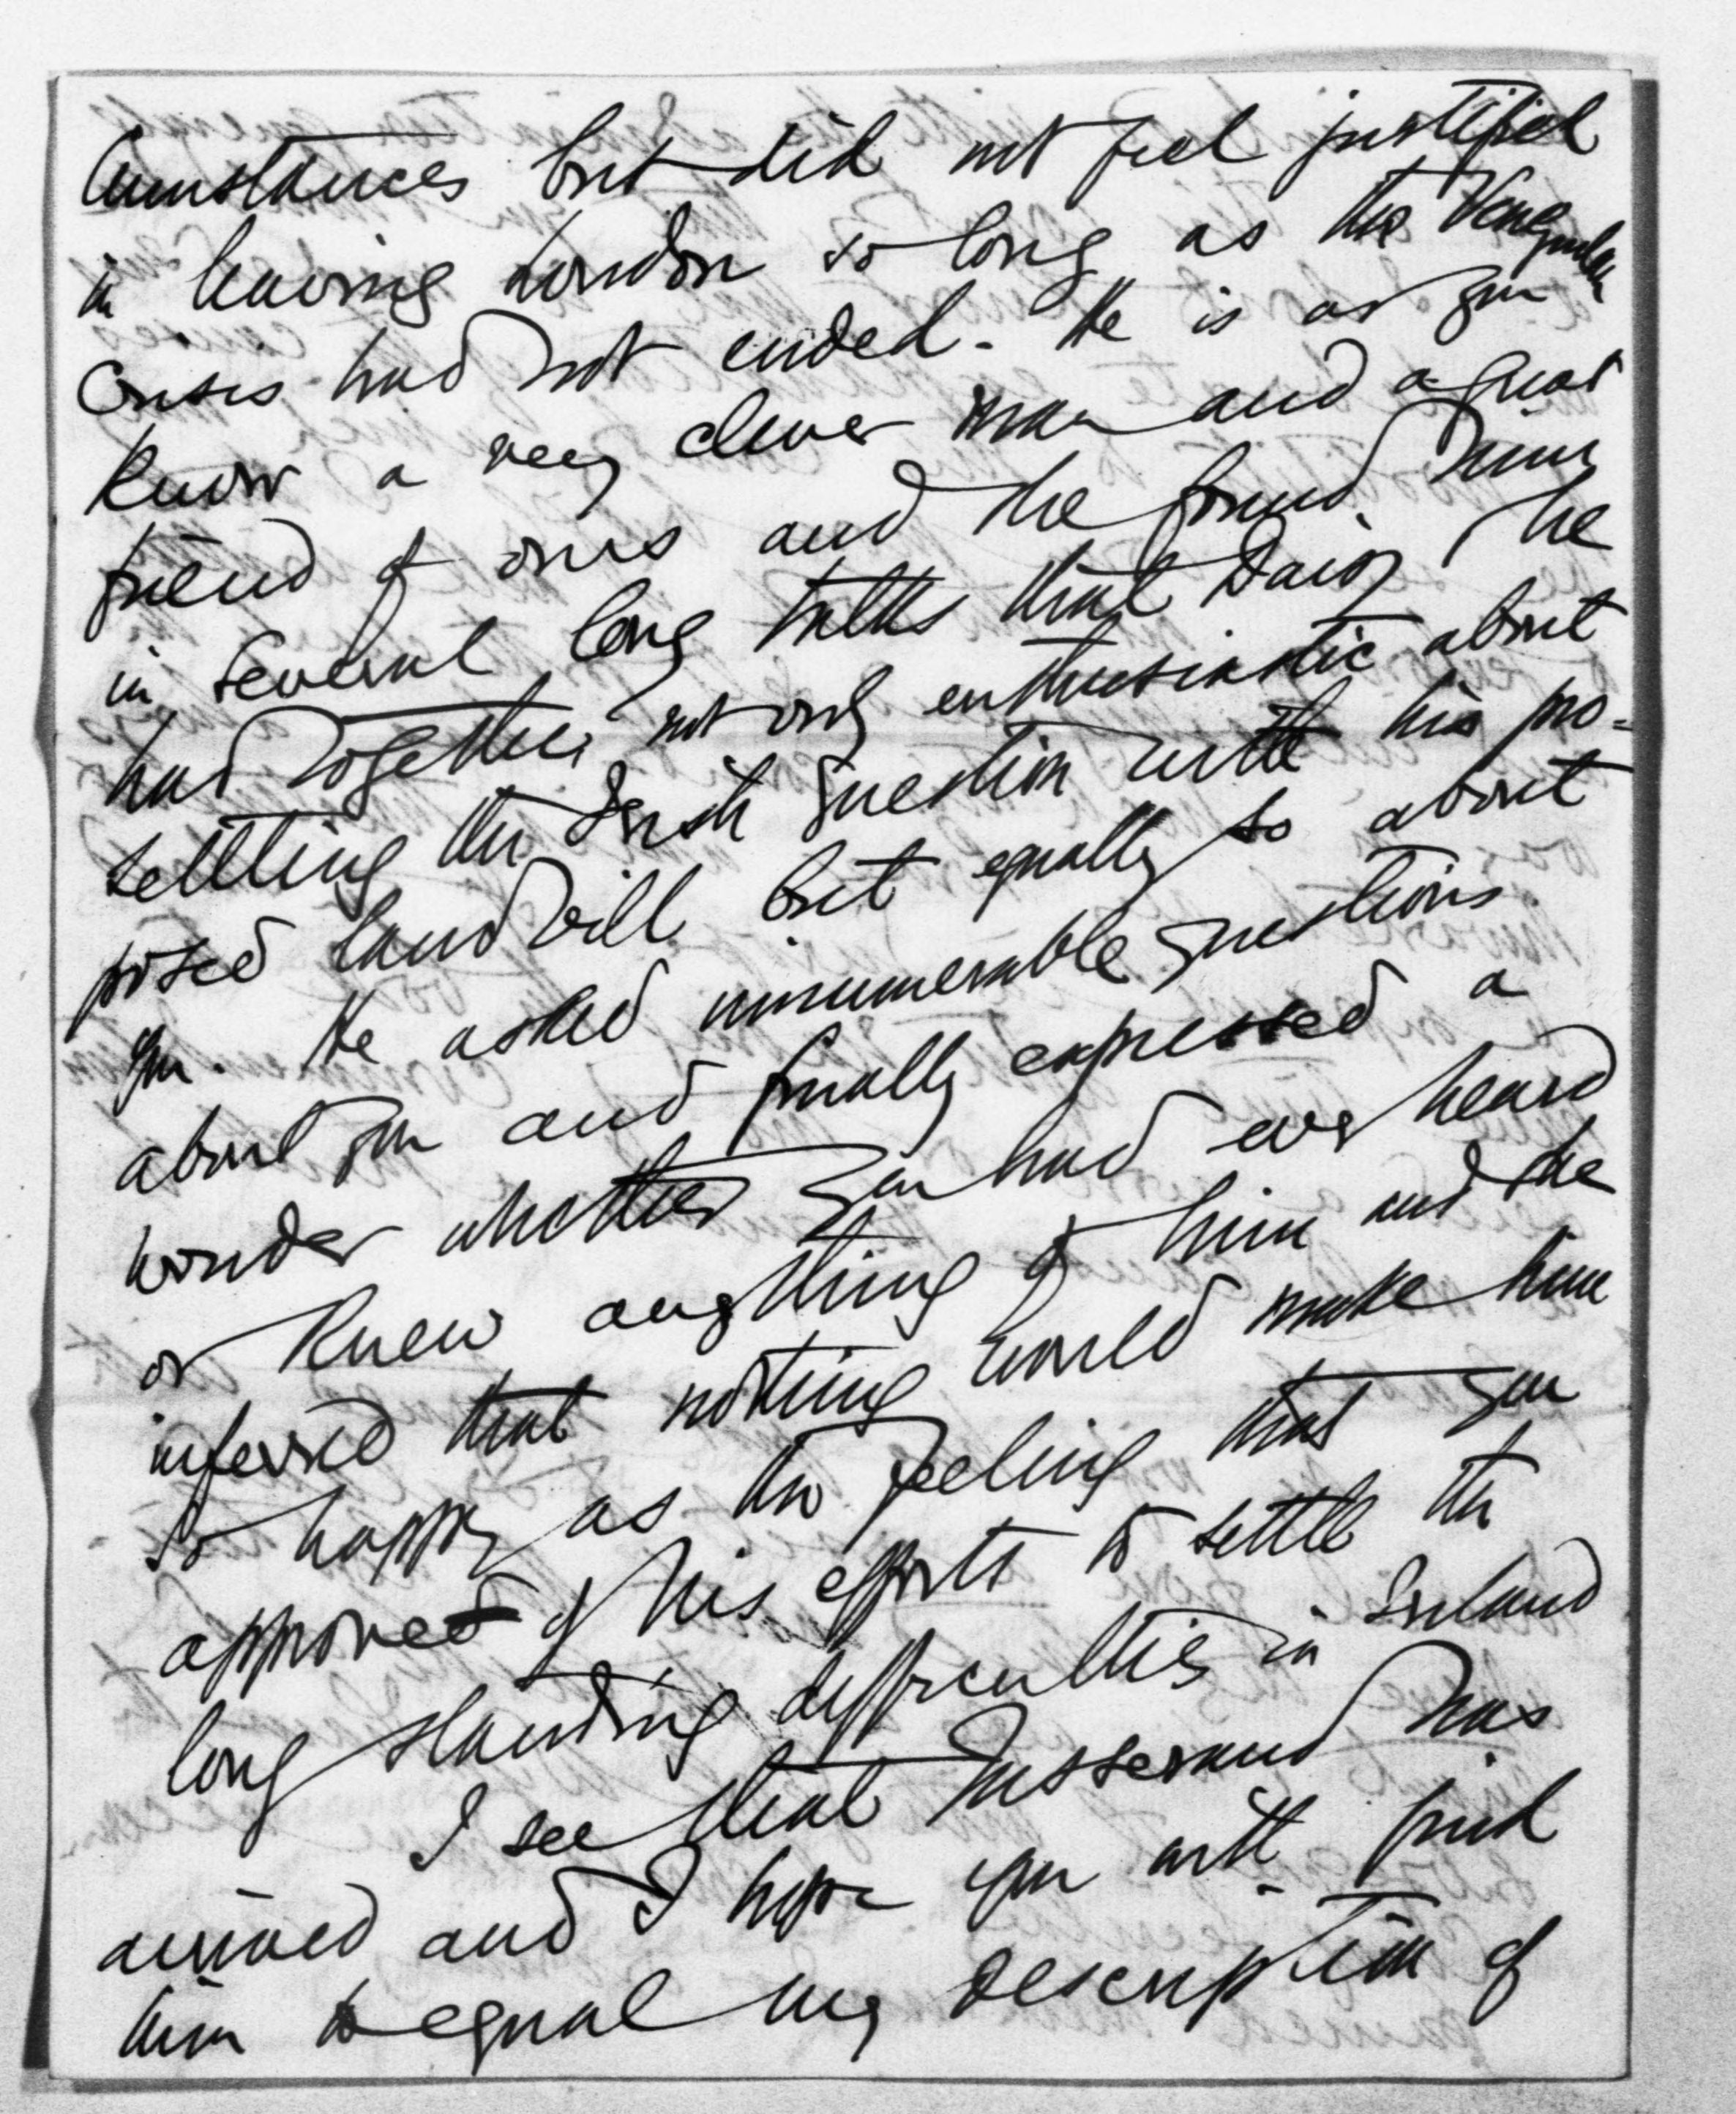 cumstances but did not feel justified
in leaving London so long as the Venezuelan
Crisis had not ended. He is as you
know a very clever man and a great
friend of ours and he found him
in several long talks that Daisy & he
had together not only enthusiastic about
settling the Irish question with his pro=
posed Land Bill but equally so about
you. He asked innumerable questions
about you and finally expressed a
wonder whether you had ever heard
or knew anything of him and she
inferred that nothing would make him
so happy as the feeling that you
approved of his efforts to settle the
long standing difficulties in Ireland
I see that Jusserand has
arrived and I hope you will find
him to equal my description of